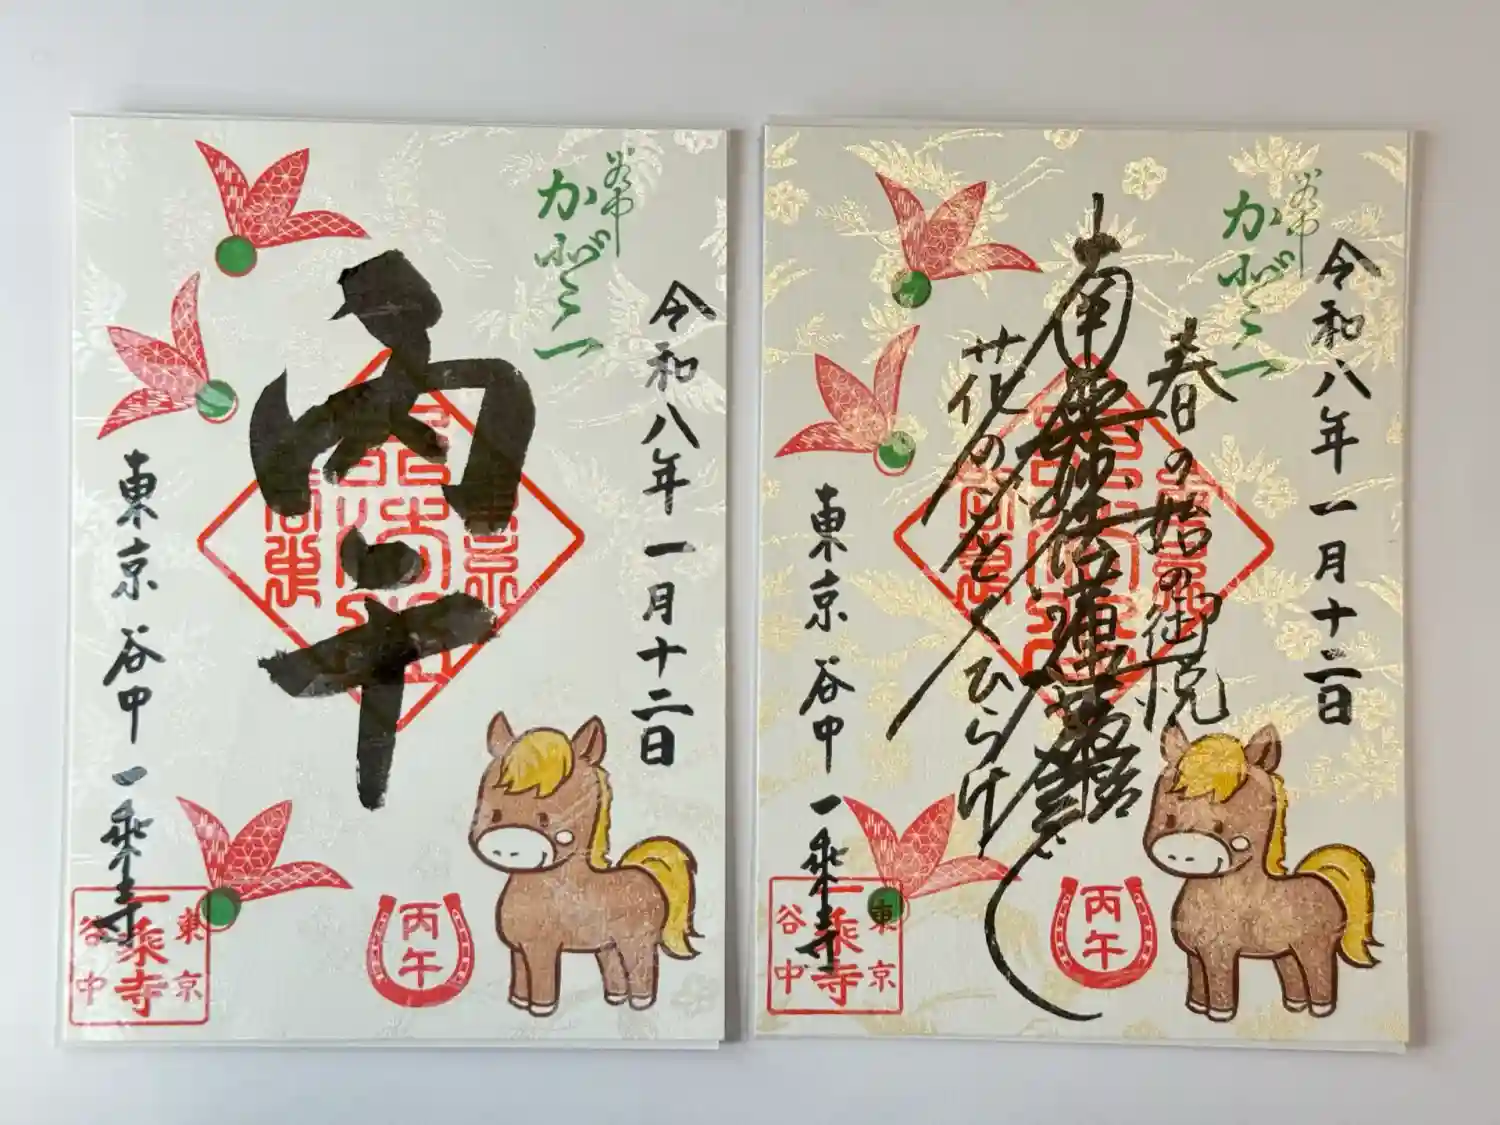 谷中
令和八年一月十二日
丙午
東京谷中一乗寺
丙午
東京
一乗寺
谷中
谷中
令和八年一月十二日
春の始の御悦
南無妙法蓮華経
花のことくひらけ
東京谷中一乗寺
丙午
東京
一乗寺
谷中